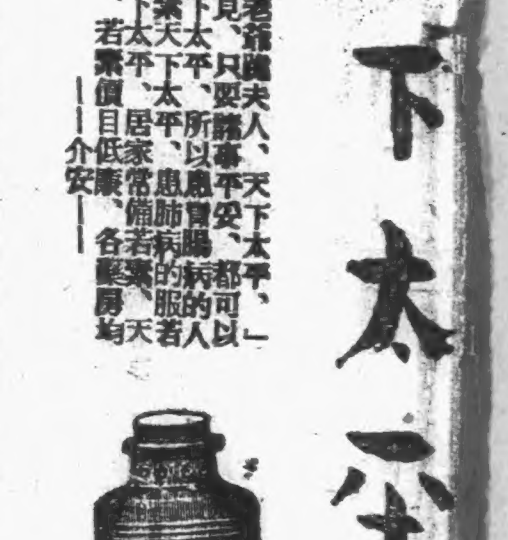 下太平
老爺隨夫人、天下太平、」
見、只要諸事平安、都可以
下太平、所以患胃腸病的人
素天下太平、患肺病的服若
下太平、居家常備若素、天
、若素價目低廉、各藥房均
——介安——